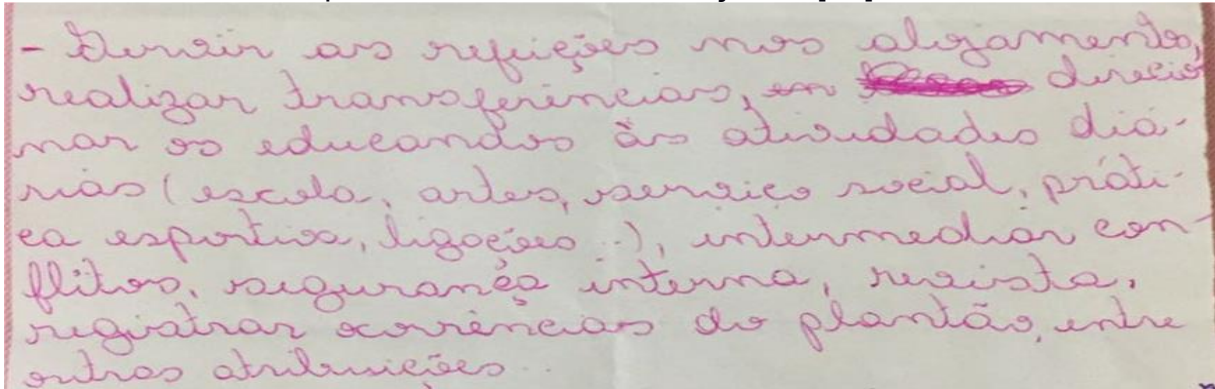 - Servir as refeições nos alojamento,
realizar transferências, en direcio
nar os educandos às atividades diá-
rias (escola, artes, serviço social, práti-
ca esportiva, ligações..), intermediar con-
flitos, segurança interna, revista,
registrar ocorrências do plantão, entre
outras atribuições...